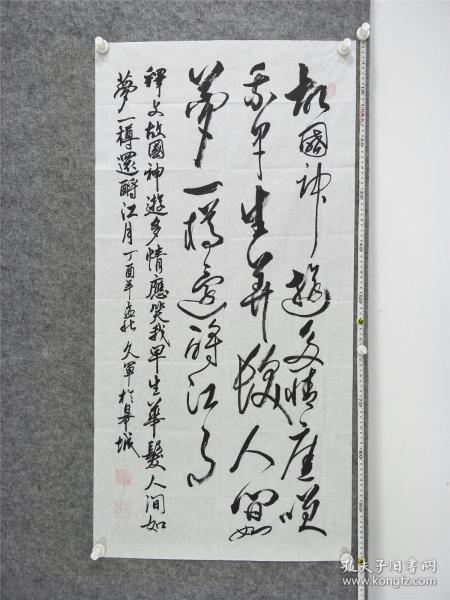 故國神遊多情應笑
我早生華髮人間如
夢一樽還酹江月
釋文故國神遊多情應笑我早生華髮人間如
夢一樽還酹江月丁酉年 久軍於 城
孔夫子旧书网
www.kongfz.com